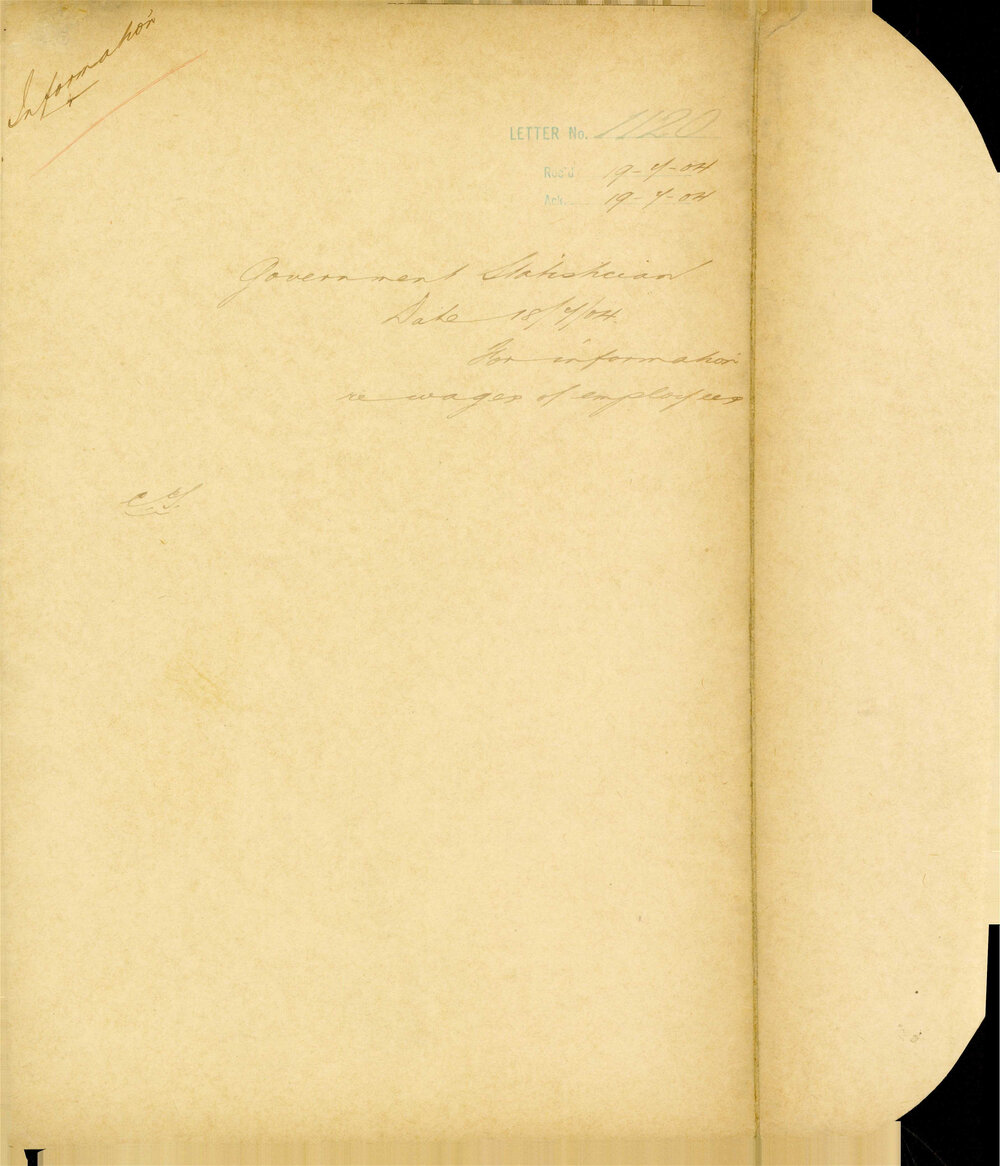 Information
LETTER No. 1120
Rec'd 19-7-04
Ack. 19-7-04
Government Statistician
Date 18/7/04
For information
re wages of employees